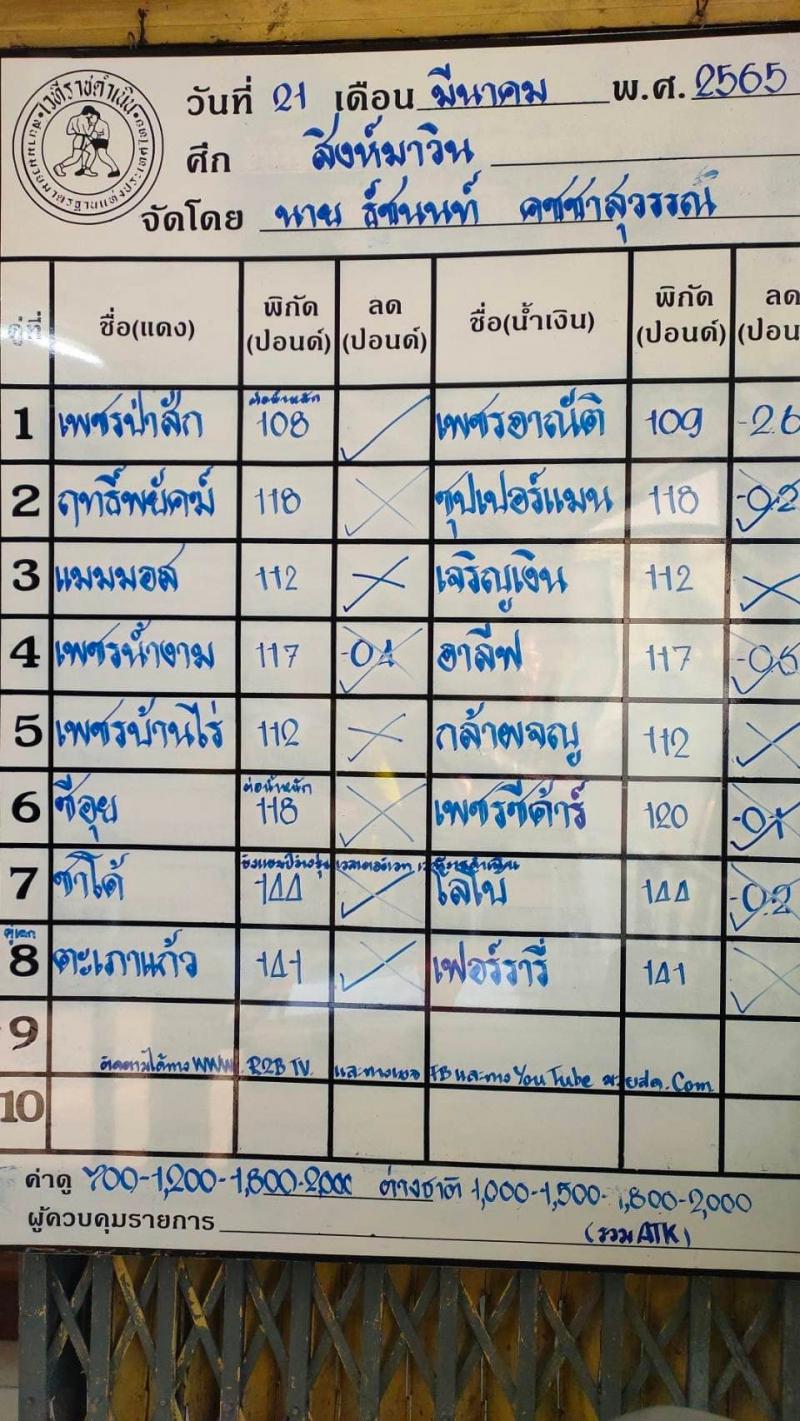 เวทีราชดำเนิน
สนามมวยมาตรฐานแห่งประเทศไทย
วันที่ 21 เดือน มีนาคม พ.ศ. 2565
ศึก สิงห์มาวิน
จัดโดย นาย ธัชนนท์ คชชาสุวรรณ์
คู่ที่ ชื่อ(แดง) พิกัด (ปอนด์) ลด (ปอนด์) ชื่อ(น้ำเงิน) พิกัด (ปอนด์) ลด
1 เพชรป่าสัก ต่อน้ำหนัก 108 เพชรอาณัติ 109 -2.6
2 ฤทธิ์พยัคฆ์ 118 ซุปเปอร์แมน 118 -0.2
3 แมมมอส 112 เจริญเงิน 112
4 เพชรน้ำงาม 117 -0.1 อาลีฟ 117 -0.6
5 เพชรบ้านไร่ 112 กล้าผจญ 112
6 ซีอุย ต่อน้ำหนัก 118 เพชรซีต้าร์ 120
7 ซาโต้ 144 โลโบ้ 144 -0.2
คู่เอก
8 ตะเภาแก้ว 141 เฟอร์รารี่ 141
9
ติดตามได้ทาง WWW. R2B TV. และทางเพจ FB และทาง YouTube มวยสด.Com
10
ค่าดู 700-1,200-1,800-2,000 ต่างชาติ 1,000-1,500-1,800-2,000
ผู้ควบคุมรายการ (รวม ATK)